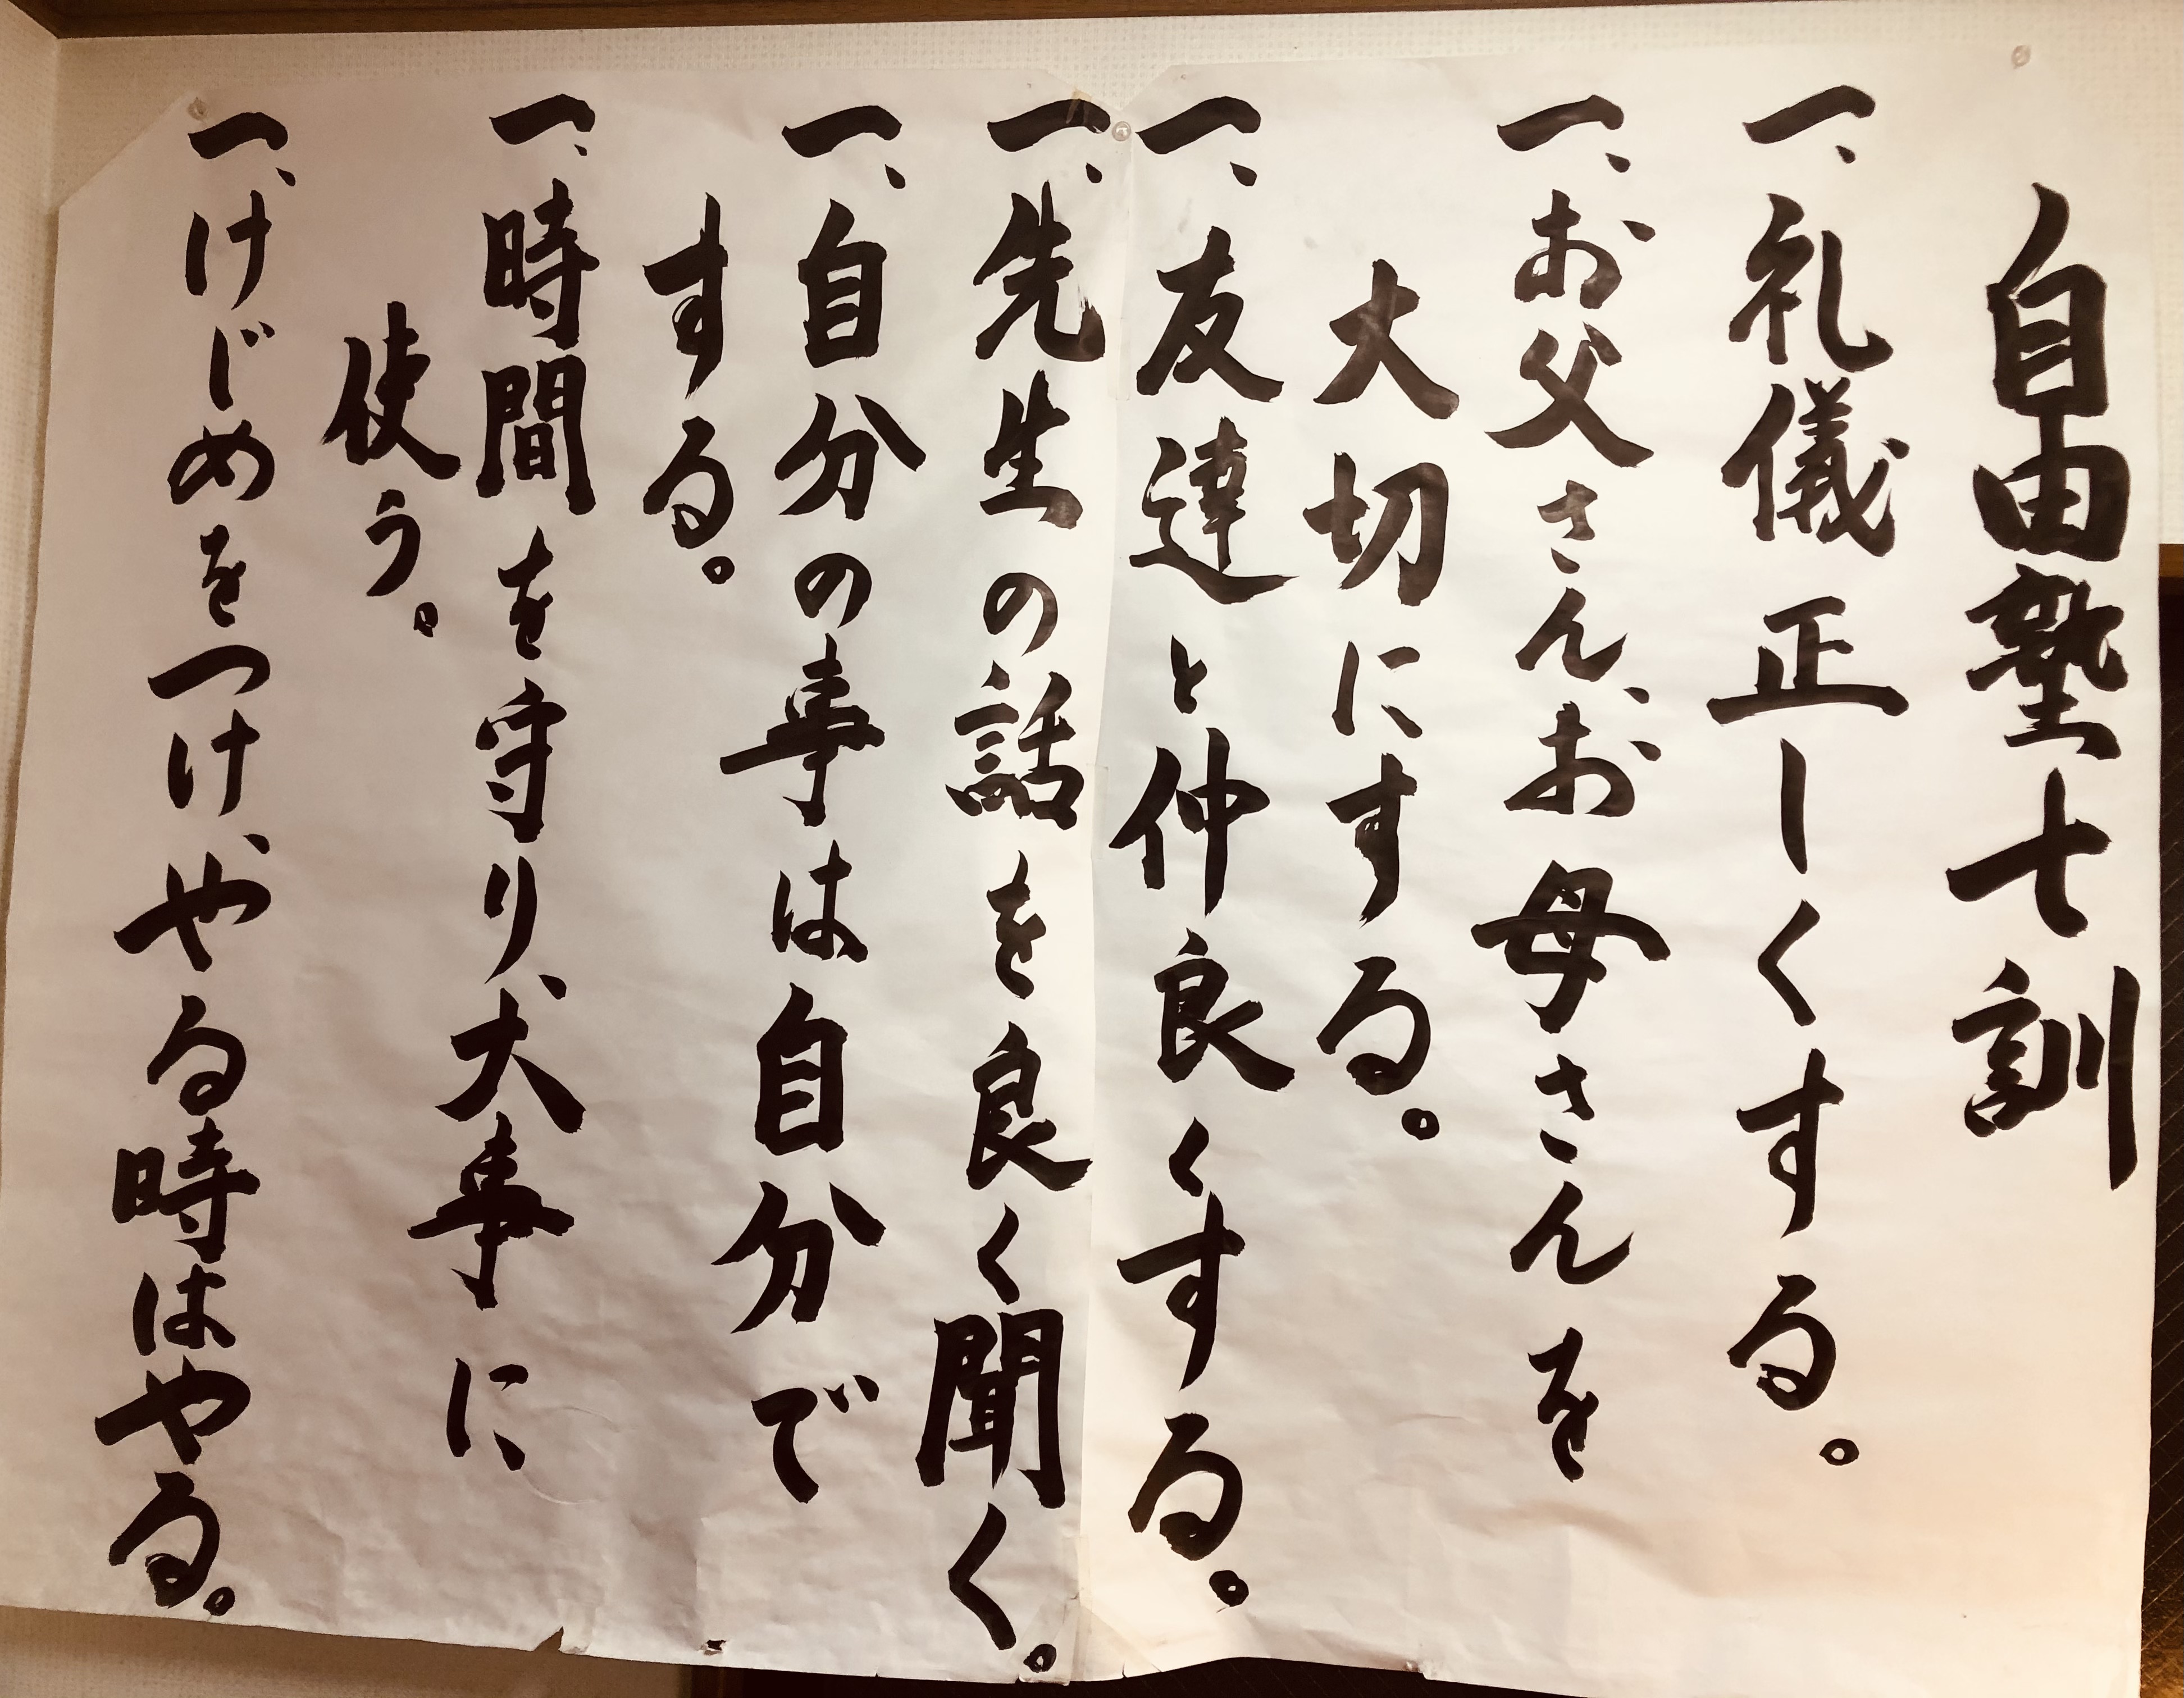 自由塾七訓
一、礼儀正しくする。
一、お父さん、お母さんを
大切にする。
一、友達と仲良くする。
一、先生の話を良く聞く。
一、自分の事は自分で
する。
一、時間を守り、大事に
使う。
一、けじめをつけ、やる時はやる。